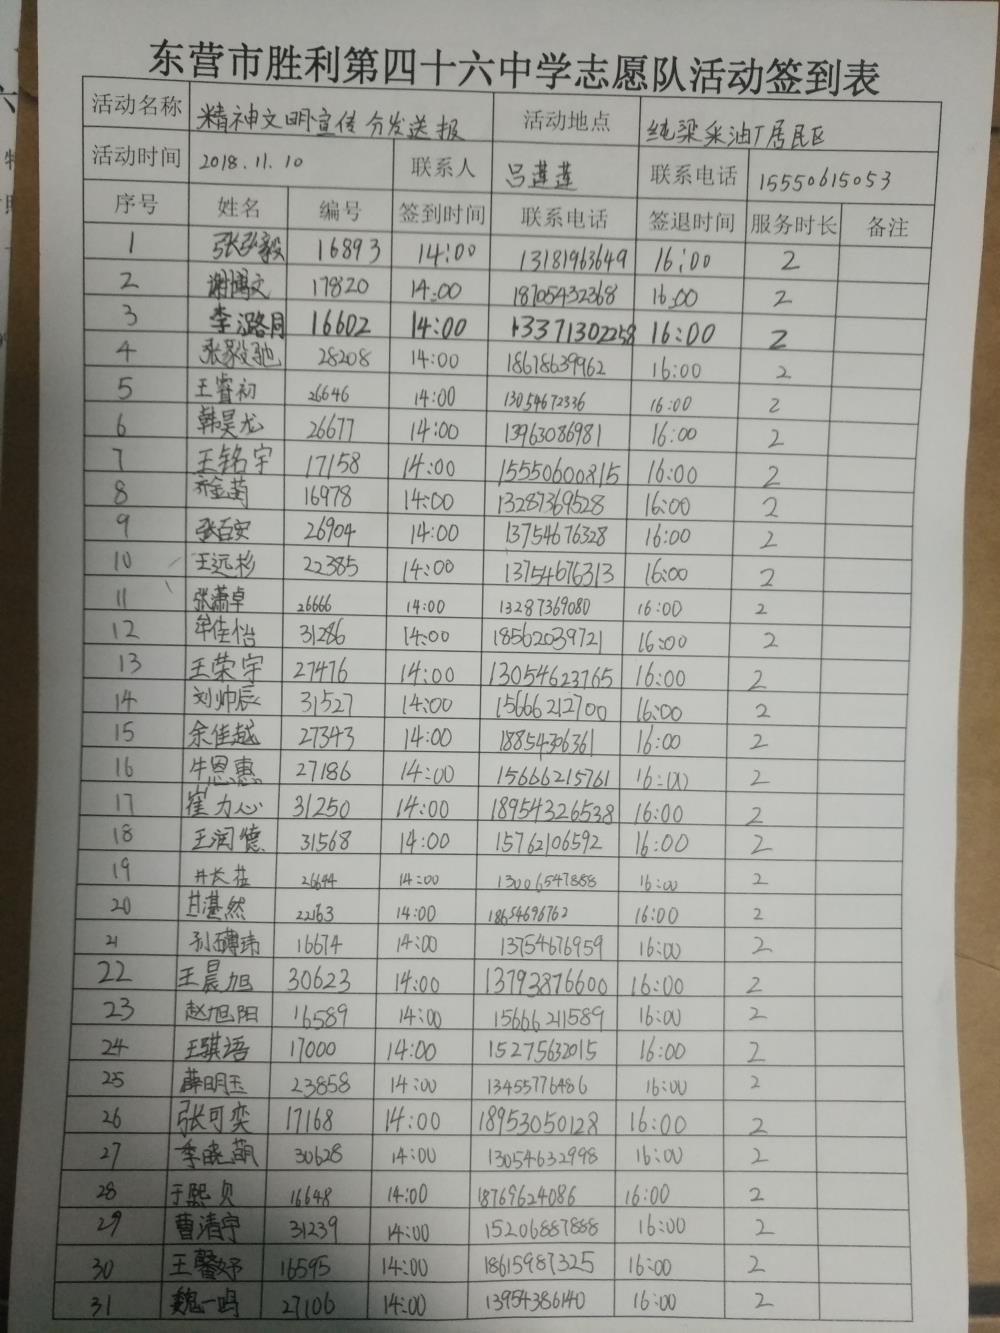 东营市胜利第四十六中学志愿队活动签到表
活动名称 精神文明宣传分发送报 活动地点 纯梁采油厂居民区
活动时间 2018.11.10 联系人 吕莲莲 联系电话 15550615053
序号 姓名 编号 签到时间 联系电话 签退时间 服务时长 备注
1 张弘毅 16893 14:00 13181963649 16:00 2
2 谢博文 17820 14:00 18705432368 16:00 2
3 李潞同 16602 14:00 13371302258 16:00 2
4 张毅驰 28208 14:00 18678639962 16:00 2
5 王睿初 26646 14:00 13054672336 16:00 2
6 韩昊龙 26677 14:00 13963086981 16:00 2
7 王铭宇 17158 14:00 15550600815 16:00 2
8 16978 14:00 13287369528 16:00 2
9 张百安 26904 14:00 13754676328 16:00 2
10 王远杉 22385 14:00 13754676313 16:00 2
11 张潇卓 26666 14:00 13287369080 16:00 2
12 牟佳怡 31286 14:00 18562039721 16:00 2
13 王荣宇 27476 14:00 13054623765 16:00 2
14 刘帅辰 31527 14:00 15666212700 16:00 2
15 余佳越 27343 14:00 1885436361 16:00 2
16 牛恩惠 27186 14:00 15666215761 16:00 2
17 崔力心 31250 14:00 18954326538 16:00 2
18 王润德 31568 14:00 15762106592 16:00 2
19 26644 14:00 13006547888 16:00 2
20 甘湛然 22163 14:00 18654696762 16:00 2
21 孙礴玮 16674 14:00 13754676959 16:00 2
22 王晨旭 30623 14:00 13793876600 16:00 2
23 赵旭阳 16589 14:00 15666211589 16:00 2
24 王骐语 17000 14:00 15275632015 16:00 2
25 薛明玉 23858 14:00 13455776486 16:00 2
26 张可奕 17168 14:00 18953050128 16:00 2
27 李晓萌 30628 14:00 13054632998 16:00 2
28 于熙贝 16648 14:00 18769624086 16:00 2
29 曹清宇 31239 14:00 15206887888 16:00 2
30 王馨妤 16595 14:00 18615987325 16:00 2
31 魏一鸣 27106 14:00 13954386140 16:00 2